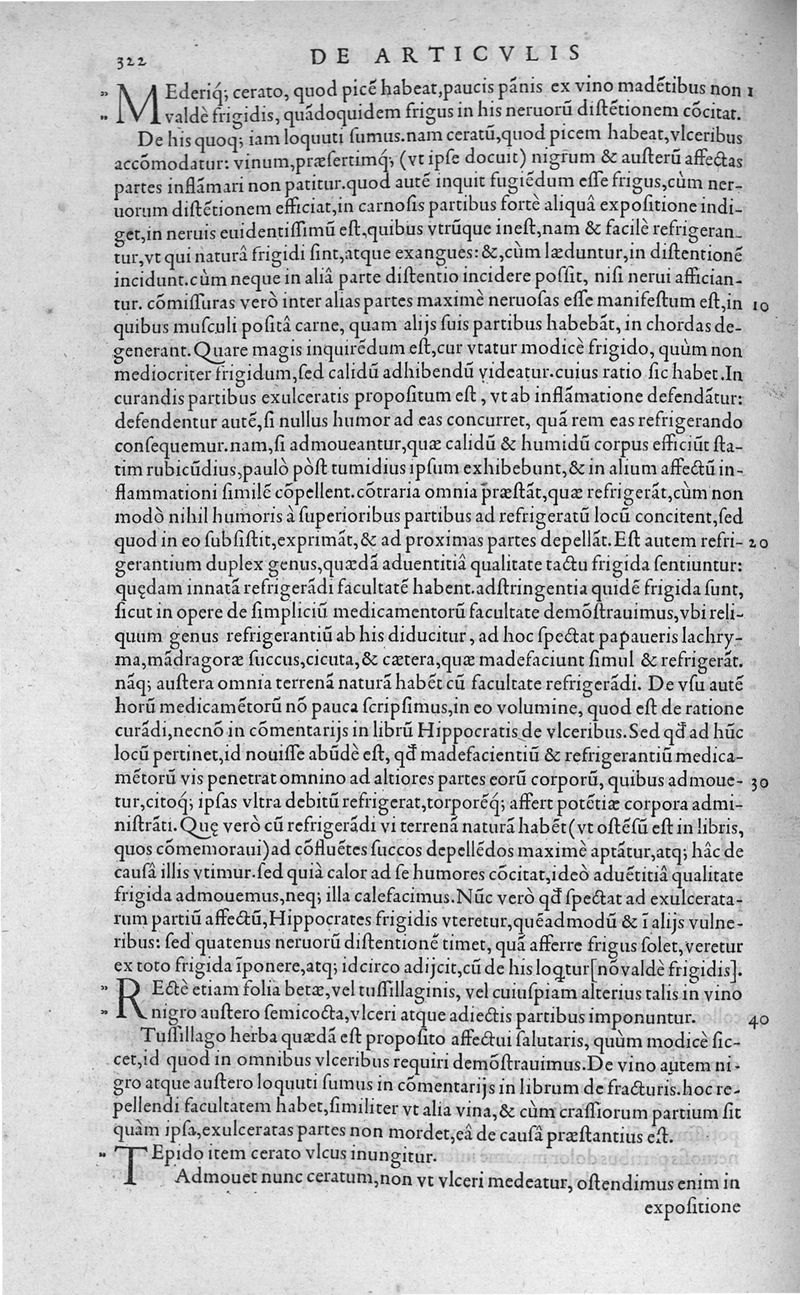 322 DE ARTICVLIS
" MEderiq́; cerato, quod picẽ habeat, paucis pãnis ex vino madẽtibus non 1
" valdè frigidis, quãdoquidem frigus in his neruorũ diſtẽtionem cõcitat.
De his quoq; iam loquuti ſumus. nam ceratũ, quod picem habeat, vlceribus
accõmodatur: vinum, præſertimq́; (vt ipſe docuit) nigrum & auſterũ affectas
partes inflãmari non patitur. quod autẽ inquit fugiẽdum eſſe frigus, cùm ner-
uorum diſtẽtionem efficiat, in carnoſis partibus fortè aliquâ expoſitione indi-
get, in neruis euidentiſſimũ eſt, quibus vtrũque ineſt, nam & facilè refrigeran-
tur, vt qui naturâ frigidi ſint, atque exangues: &, cùm læduntur, in diſtentionẽ
incidunt. cùm neque in aliâ parte diſtentio incidere poſſit, niſi nerui affician-
tur. cõmiſſuras verò inter alias partes maximè neruoſas eſſe manifeſtum eſt, in 10
quibus muſculi poſitâ carne, quam alijs ſuis partibus habebãt, in chordas de-
generant. Quare magis inquirẽdum eſt, cur vtatur modicè frigido, quùm non
mediocriter frigidum, ſed calidũ adhibendũ videatur. cuius ratio ſic habet. In
curandis partibus exulceratis propoſitum eſt, vt ab inflãmatione defendãtur:
defendentur autẽ, ſi nullus humor ad eas concurret, quã rem eas refrigerando
conſequemur. nam, ſi admoueantur, quæ calidũ & humidũ corpus efficiũt ſta-
tim rubicũdius, paulò pòſt tumidius ipſum exhibebunt, & in alium affectũ in-
flammationi ſimilẽ cõpellent. cõtraria omnia præſtãt, quæ refrigerãt, cùm non
modò nihil humoris à ſuperioribus partibus ad refrigeratũ locũ concitent, ſed
quod in eo ſubſiſtit, exprimãt, & ad proximas partes depellãt. Eſt autem refri- 20
gerantium duplex genus, quædã aduentitiâ qualitate tactu frigida ſentiuntur:
quędam innatã refrigerãdi facultatẽ habent. adſtringentia quidẽ frigida ſunt,
ſicut in opere de ſimpliciũ medicamentorũ facultate demõſtrauimus, vbi reli-
quum genus refrigerantiũ ab his diducitur, ad hoc ſpectat papaueris lachry-
ma, mãdragoræ ſuccus, cicuta, & cætera, quæ madefaciunt ſimul & refrigerãt.
nãq; auſtera omnia terrenã naturã habẽt cũ facultate refrigerãdi. De vſu autẽ
horũ medicamẽtorũ nõ pauca ſcripſimus, in eo volumine, quod eſt de ratione
curãdi, necnõ in cõmentarijs in librũ Hippocratis de vlceribus. Sed qđ ad hũc
locũ pertinet, id nouiſſe abũdè eſt, qđ madefacientiũ & refrigerantiũ medica-
mẽtorũ vis penetrat omnino ad altiores partes eorũ corporũ, quibus admoue- 30
tur, citoq́; ipſas vltra debitũ refrigerat, torporẽq́; affert potẽtiæ corpora admi-
niſtrãti. Quę verò cũ refrigerãdi vi terrenã naturã habẽt (vt oſtẽſũ eſt in libris,
quos cõmemoraui) ad cõfluẽtes ſuccos depellẽdos maximè aptãtur, atq; hâc de
cauſâ illis vtimur. ſed quià calor ad ſe humores cõcitat, ideò aduẽtitiâ qualitate
frigida admouemus, neq; illa calefacimus. Nũc verò qđ ſpectat ad exulcerata-
rum partiũ affectũ, Hippocrates frigidis vteretur, quẽadmodũ & ĩ alijs vulne-
ribus: ſed quatenus neruorũ diſtentionẽ timet, quã afferre frigus ſolet, veretur
ex toto frigida ĩponere, atq; idcirco adijcit, cũ de his loqtur [nõ valdè frigidis].
" REctè etiam folia betæ, vel tuſſillaginis, vel cuiuſpiam alterius talis in vino
" nigro auſtero ſemicocta, vlceri atque adiectis partibus imponuntur. 40
Tuſſillago herba quædã eſt propoſito affectui ſalutaris, quùm modicè ſic-
cet, id quod in omnibus vlceribus requiri demõſtrauimus. De vino autem ni-
gro atque auſtero loquuti ſumus in cõmentarijs in librum de fracturis. hoc re-
pellendi facultatem habet, ſimiliter vt alia vina, & cùm craſſiorum partium ſit
quàm ipſa, exulceratas partes non mordet, eâ de cauſâ præſtantius eſt.
" TEpido item cerato vlcus inungitur.
Admouet nunc ceratum, non vt vlceri medeatur, oſtendimus enim in
expoſitione